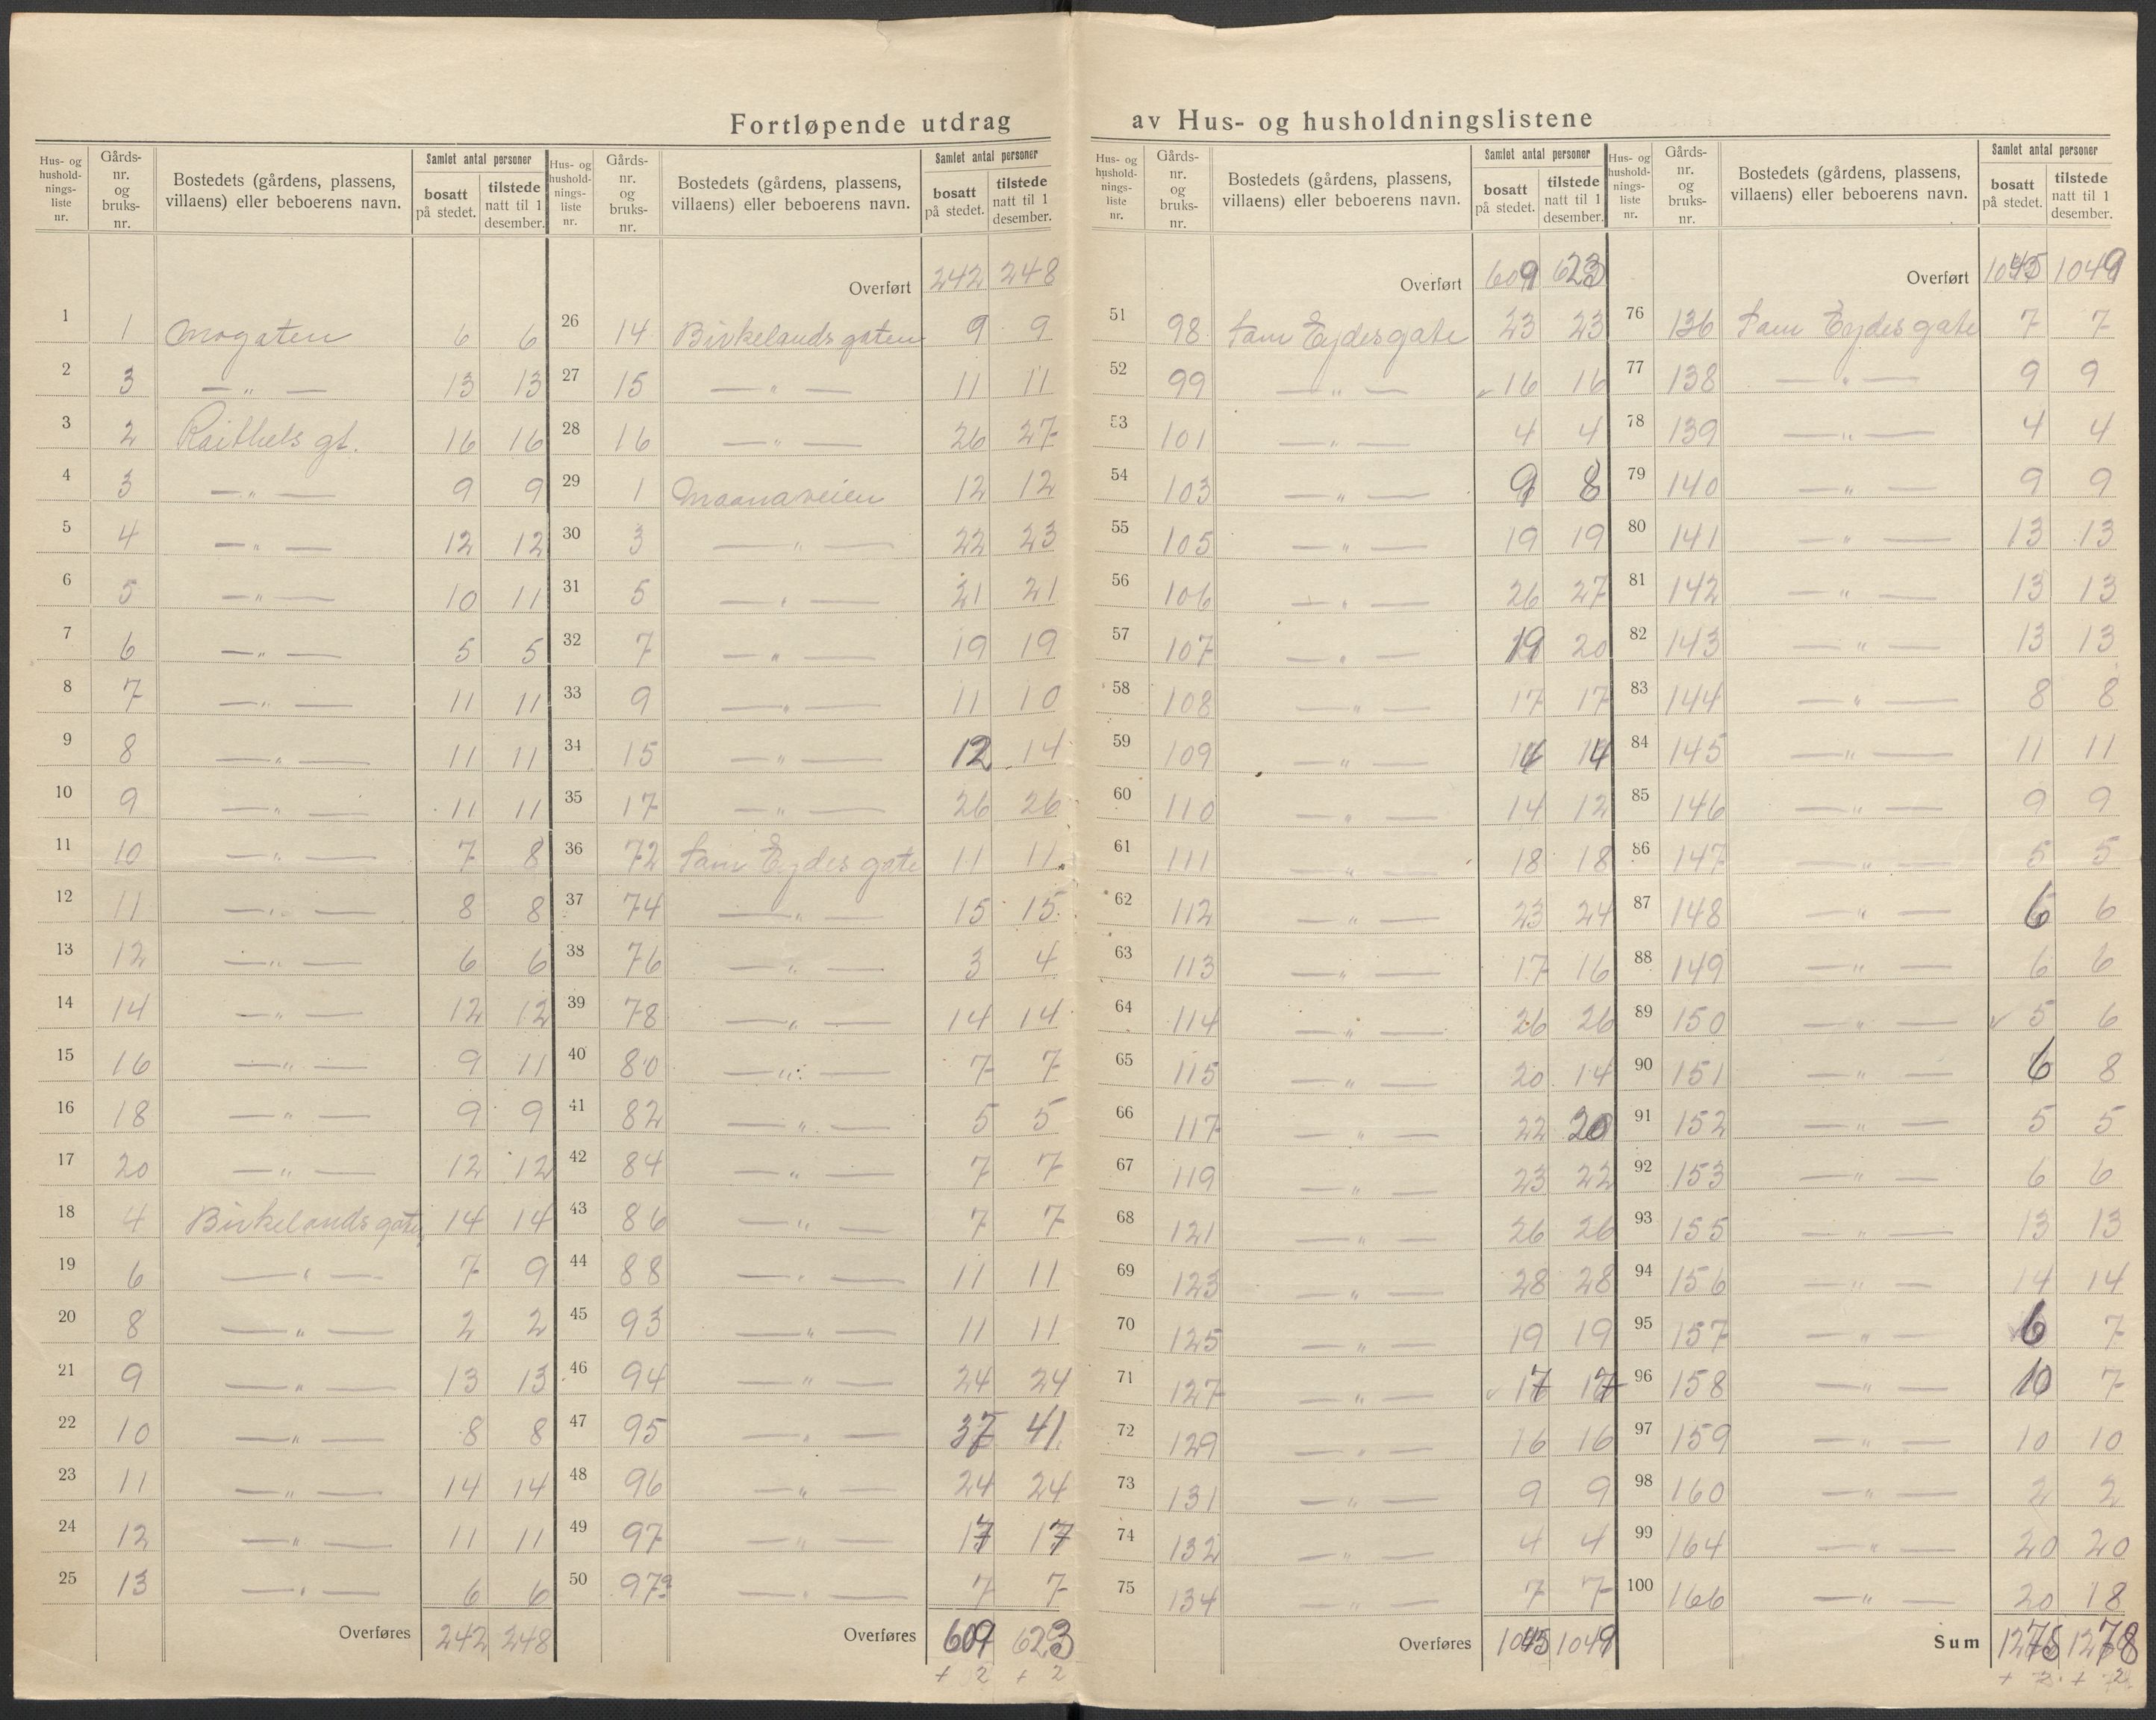 Fortløpende utdrag av Hus- og husholdningslistene
Hus- og husholdnings-liste nr. | Gårds-nr. og bruks-nr. | Bostedets (gårdens, plassens, villaens) eller beboerens navn. | Samlet antal personer | bosatt på stedet. | tilstede natt til 1 desember.
1 1 Mogaten 6 6
2 3 — " — 13 13
3 2 Raithels gt. 16 16
4 3 — " — 9 9
5 4 — " — 12 12
6 5 — " — 10 11
7 6 — " — 5 5
8 7 — " — 11 11
9 8 — " — 11 11
10 9 — " — 11 11
11 10 — " — 7 8
12 11 — " — 8 8
13 12 — " — 6 6
14 14 — " — 12 12
15 16 — " — 9 11
16 18 — " — 9 9
17 20 — " — 12 12
18 4 Birkelands gaten 14 14
19 6 — " — 7 9
20 8 — " — 2 2
21 9 — " — 13 13
22 10 — " — 8 8
23 11 — " — 14 14
24 12 — " — 11 11
25 13 — " — 6 6
Overføres 242 248
Hus- og husholdnings-liste nr. | Gårds-nr. og bruks-nr. | Bostedets (gårdens, plassens, villaens) eller beboerens navn. | Samlet antal personer | bosatt på stedet. | tilstede natt til 1 desember.
Overført 242 248
26 14 Birkelands gaten 9 9
27 15 — " — 11 11
28 16 — " — 26 27
29 1 Maanaveien 12 12
30 3 — " — 22 23
31 5 — " — 21 21
32 7 — " — 19 19
33 9 — " — 11 10
34 15 — " — 12 14
35 17 — " — 26 26
36 72 Sam Eydes gate 11 11
37 74 — " — 15 15
38 76 — " — 3 4
39 78 — " — 14 14
40 80 — " — 7 7
41 82 — " — 5 5
42 84 — " — 7 7
43 86 — " — 7 7
44 88 — " — 11 11
45 93 — " — 11 11
46 94 — " — 24 24
47 95 — " — 37 41
48 96 — " — 24 24
49 97 — " — 17 17
50 97a — " — 7 7
Overføres 609 623
+ 2 + 2
Hus- og husholdnings-liste nr. | Gårds-nr. og bruks-nr. | Bostedets (gårdens, plassens, villaens) eller beboerens navn. | Samlet antal personer | bosatt på stedet. | tilstede natt til 1 desember.
Overført 609 623
51 98 Sam Eydes gate 23 23
52 99 — " — 16 16
53 101 — " — 4 4
54 103 — " — 9 8
55 105 — " — 19 19
56 106 — " — 26 27
57 107 — " — 19 20
58 108 — " — 17 17
59 109 — " — 14 14
60 110 — " — 14 12
61 111 — " — 18 18
62 112 — " — 23 24
63 113 — " — 17 16
64 114 — " — 26 26
65 115 — " — 20 14
66 117 — " — 22 20
67 119 — " — 23 22
68 121 — " — 26 26
69 123 — " — 28 28
70 125 — " — 19 19
71 127 — " — 17 17
72 129 — " — 16 16
73 131 — " — 9 9
74 132 — " — 4 4
75 134 — " — 7 7
Overføres 1045 1049
Hus- og husholdnings-liste nr. | Gårds-nr. og bruks-nr. | Bostedets (gårdens, plassens, villaens) eller beboerens navn. | Samlet antal personer | bosatt på stedet. | tilstede natt til 1 desember.
Overført 1045 1049
76 136 Sam Eydes gate 7 7
77 138 — " — 9 9
78 139 — " — 4 4
79 140 — " — 9 9
80 141 — " — 13 13
81 142 — " — 13 13
82 143 — " — 13 13
83 144 — " — 8 8
84 145 — " — 11 11
85 146 — " — 9 9
86 147 — " — 5 5
87 148 — " — 6 6
88 149 — " — 6 6
89 150 — " — 5 6
90 151 — " — 6 8
91 152 — " — 5 5
92 153 — " — 6 6
93 155 — " — 13 13
94 156 — " — 14 14
95 157 — " — 6 7
96 158 — " — 10 7
97 159 — " — 10 10
98 160 — " — 2 2
99 164 — " — 20 20
100 166 — " — 20 18
Sum 1275 1278